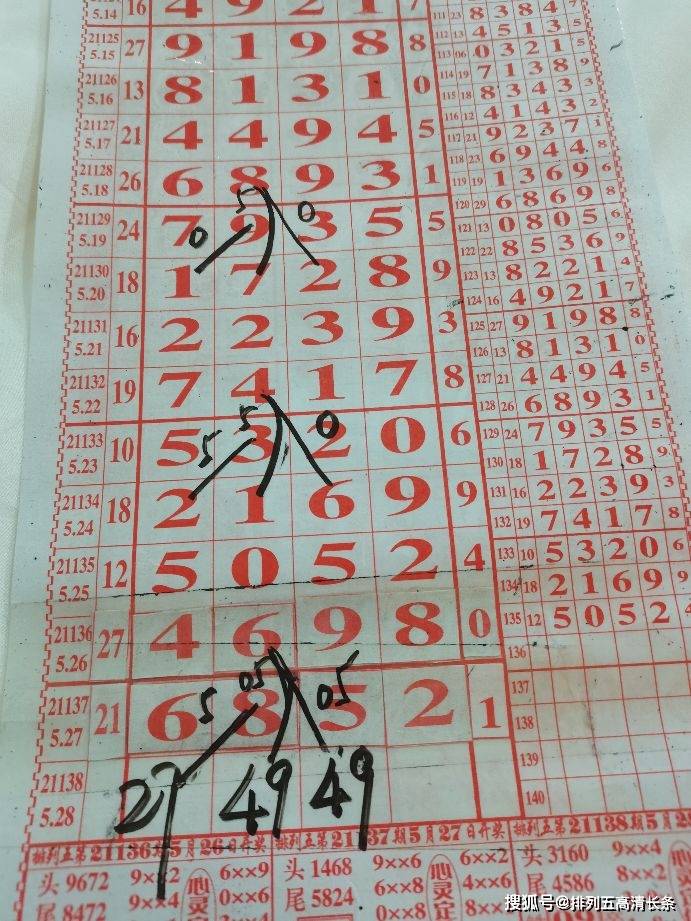 5.14 16 4 9 2 1 7
21125 5.15 27 9 1 9 8 8
21126 5.16 13 8 1 3 1 0
21127 5.17 21 4 4 9 4 5
21128 5.18 26 6 8 9 3 1
5 0
21129 5.19 24 7 9 3 5 5
0
21130 5.20 18 1 7 2 8 9
21131 5.21 16 2 2 3 9 3
21132 5.22 19 7 4 1 7 8
5 0
21133 5.23 10 5 3 2 0 6
5
21134 5.24 18 2 1 6 9 9
21135 5.25 12 5 0 5 2 4
21136 5.26 27 4 6 9 8 0
05 05
21137 5.27 21 6 8 5 2 1
5
21138 5.28 27 49 49
111 23 8 3 8 4 7
112 13 4 5 1 3 5
113 06 0 3 2 1 5
114 19 7 1 3 8 9
115 18 8 3 4 3 3
116 12 4 1 4 3 2
117 21 9 2 3 7 1
118 23 6 9 4 4 8
119 19 1 3 6 9 6
120 29 6 8 6 9 8
121 13 0 8 0 5 6
122 22 8 5 3 6 9
123 13 8 2 2 1 4
124 16 4 9 2 1 7
125 27 9 1 9 8 8
126 13 8 1 3 1 0
127 21 4 4 9 4 5
128 26 6 8 9 3 1
129 24 7 9 3 5 5
130 18 1 7 2 8 9
131 16 2 2 3 9 3
132 19 7 4 1 7 8
133 10 5 3 2 0 6
134 18 2 1 6 9 9
135 12 5 0 5 2 4
136
137
138
139
140
排列五第21136期5月26日开奖 排列五第21137期5月27日开奖 排列五第21138期5月28
头 9672 9×× 2 6××9
尾 8472 9××4 0××6
心灵
头 1468 9××6 6××2
尾 5824 6××8 4××6
心灵
头 3160 9××4
尾 4586 8××2
心灵
搜狐号@排列五高清长条